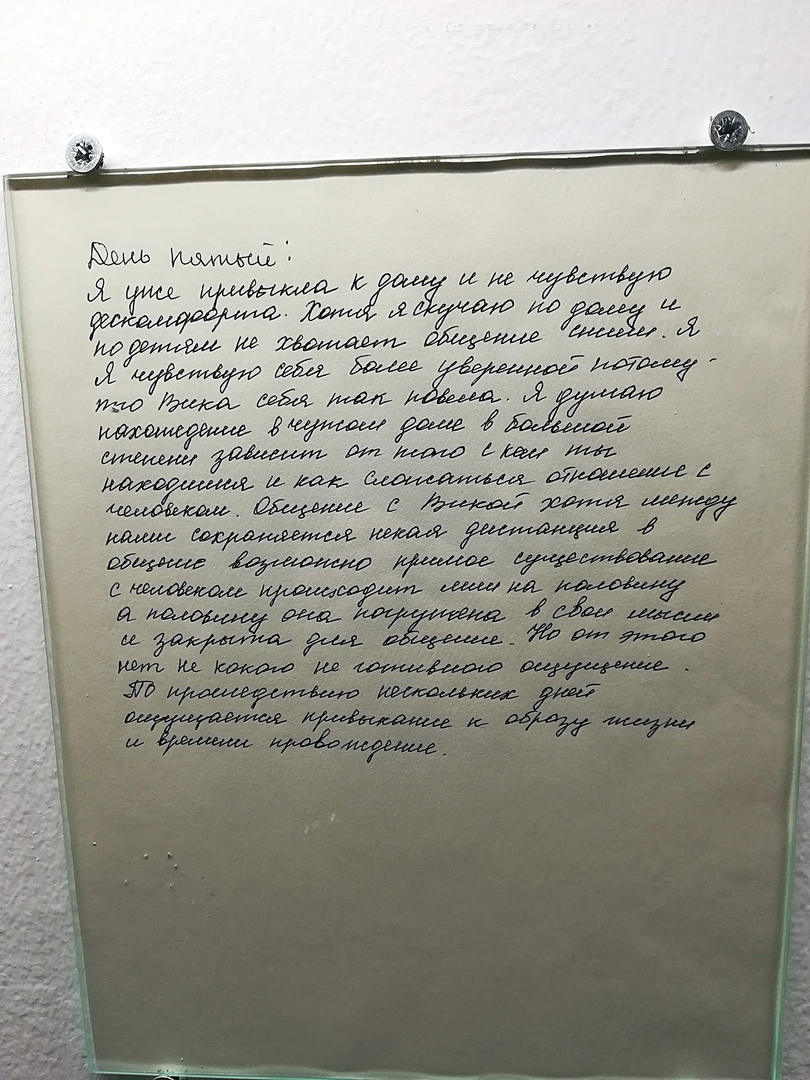 День пятый:
Я уже привыкла к дому и не чувствую
дескомфорта. Хотя я скучаю по дому и
по детям не хватает общение сними. Я
Я чувствую себя более уверенной потому-
что Вика себя так повела. Я думаю
нахождение в чужом доме в большой
степени зависит от того с кем ты
находишся и как сложаться отношение с
человеком. Общение с Викой хотя между
нами сохраняется некая дистанция в
общение возможно прямое существование
с человеком происходит лиш на половину
а половину она погружена в свои мысли
и закрыта для общение. Но от этого
нет не какого не готивного ощущение.
По проследствию нескольких дней
ощущается привыкание к образу жизни
и времени провождение.